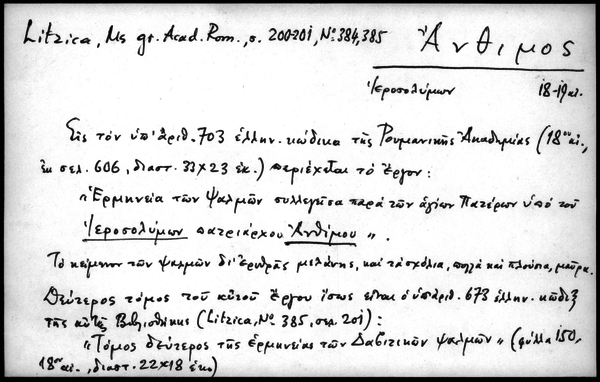 Litzica, Ms gr. Acad. Rom., σ. 200-201, No: 384, 385
Ἄνθιμος
Ἱεροσολύμων 18-19 αἰ.
Εἰς τὸν ὑπ' ἀριθ. 703 ἑλλην. κώδικα τῆς Ρουμανικῆς Ἀκαδημίας (18ου αἰ.,
ἐκ σελ. 606, διαστ. 33×23 ἑκ.) περιέχεται τὸ ἔργον:
"Ἑρμηνεία τῶν Ψαλμῶν συλλεγεῖσα παρὰ τῶν ἁγίων Πατέρων ὑπὸ τοῦ
Ἱεροσολύμων πατριάρχου Ἀνθίμου".
Τὸ κείμενον τῶν ψαλμῶν δι' ἐρυθρᾶς μελάνης, καὶ τὰ σχόλια, πυκνὰ καὶ πλούσια, μαῦρα.
Δεύτερος τόμος τοῦ αὐτοῦ ἔργου ἴσως εἶναι ὁ ὑπ' ἀριθ. 673 ἑλλην. κῶδιξ
τῆς αὐτῆς Βιβλιοθήκης (Litzica, No. 385, σελ. 201):
"Τόμος δεύτερος τῆς ἑρμηνείας τῶν Δαβιτικῶν ψαλμῶν" (φύλλα 150,
18ου αἰ., διαστ. 22×18 ἑκ.)